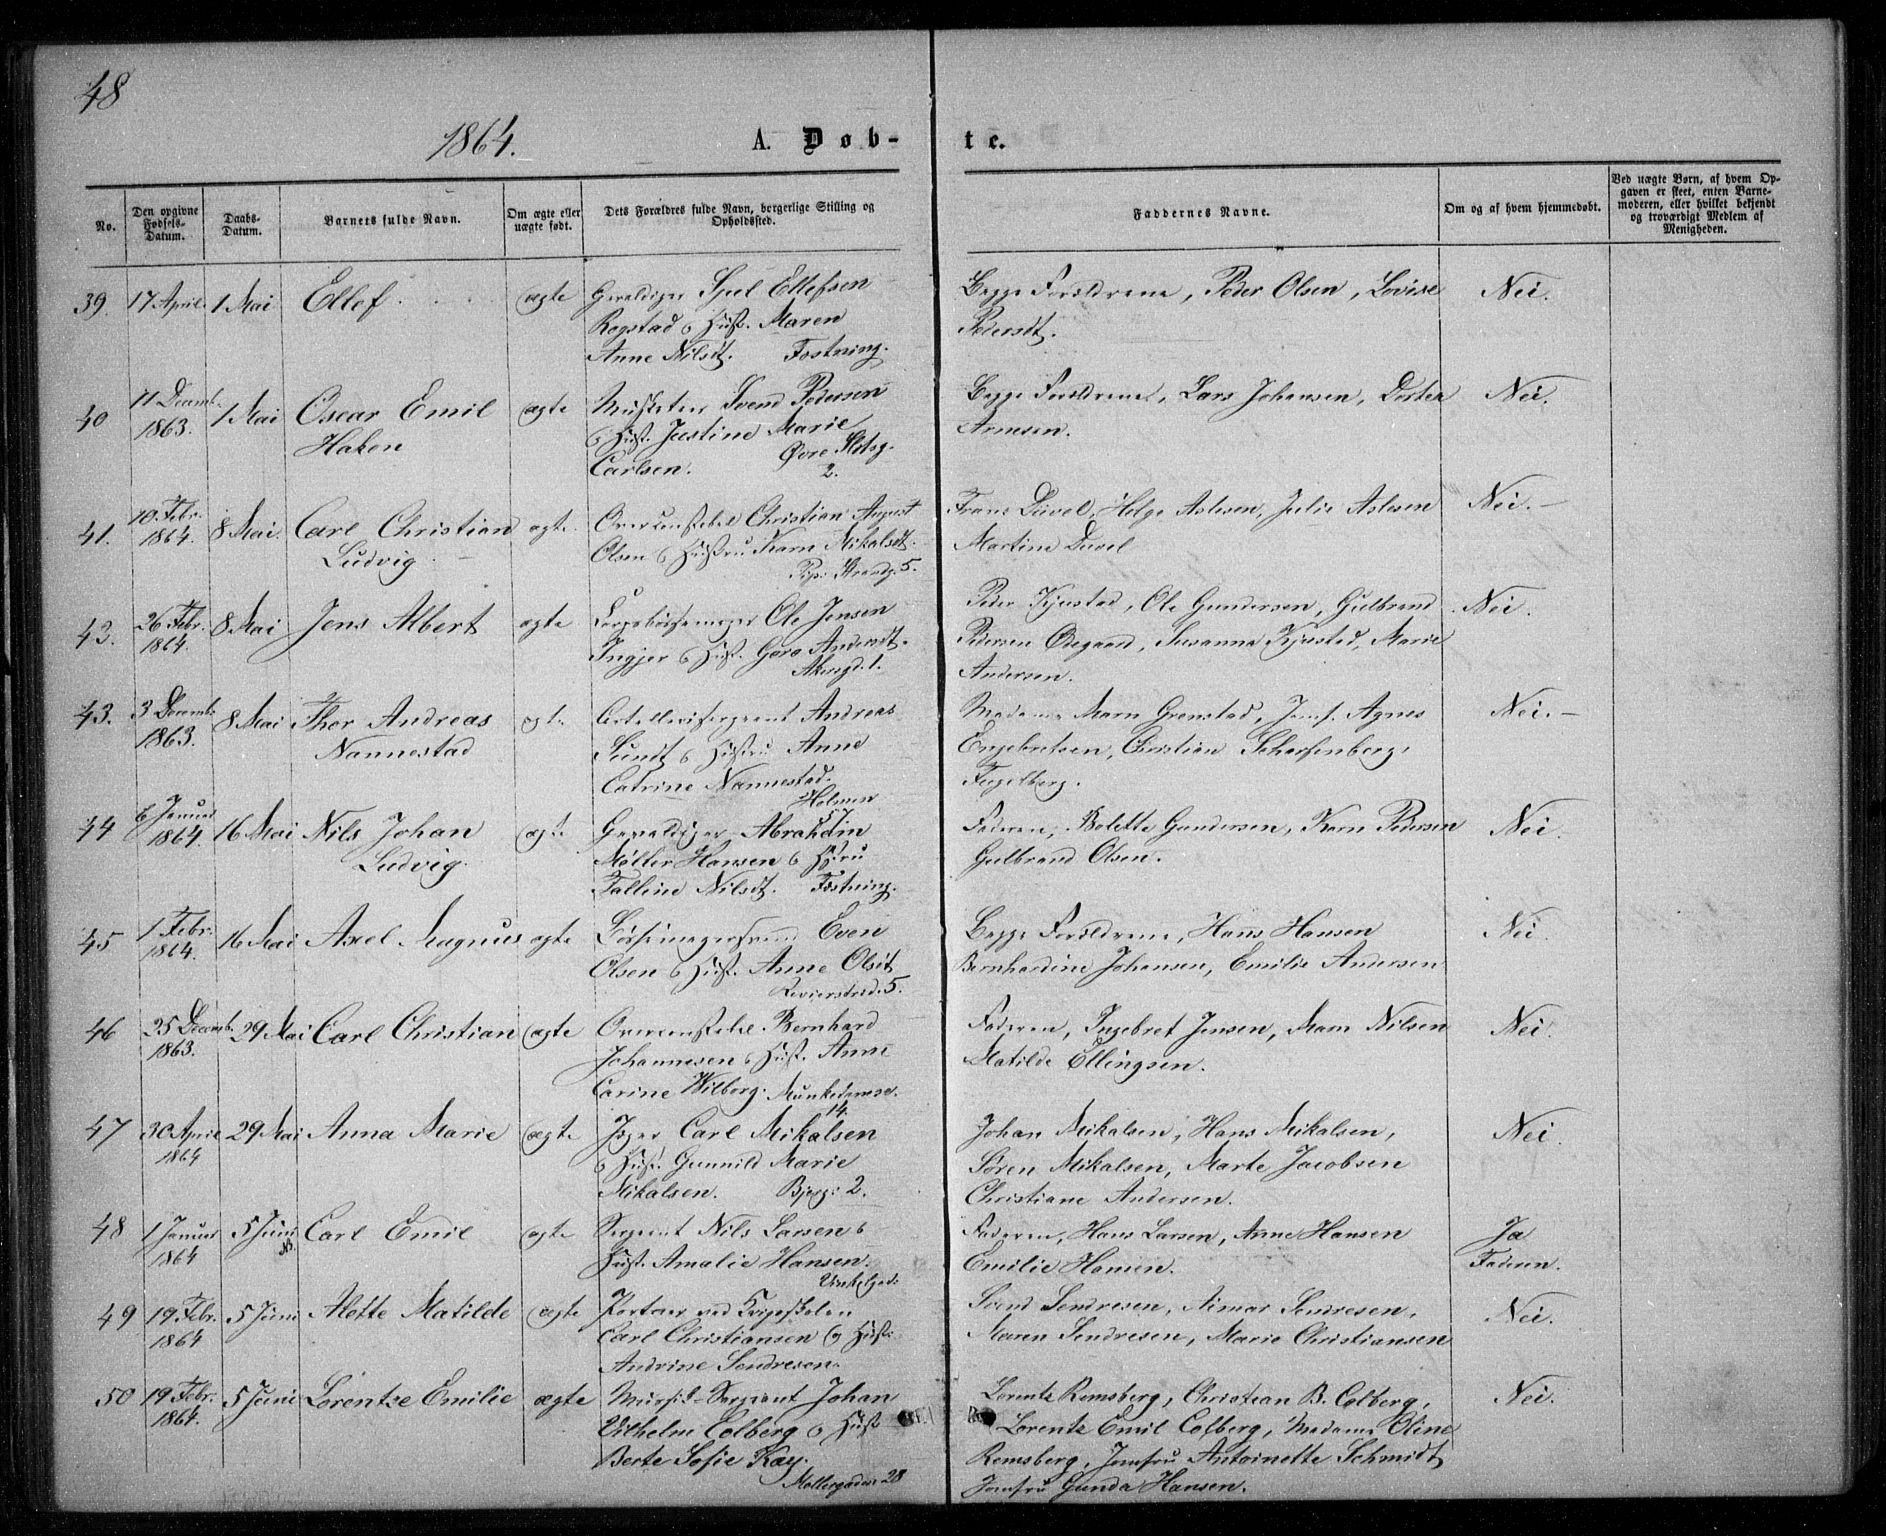 48
1864.
A. Døb-
te.
No.
Den opgivne Fødsels-Datum.
Daabs-Datum.
Barnets fulde Navn.
Om ægte eller uægte født.
Dets Forældres fulde Navn, borgerlige Stilling og Opholdssted.
Faddernes Navne.
Om og af hvem hjemmedøbt.
Ved uægte Børn, af hvem Op-
gaven er skeet, enten Barne-
moderen, eller hvilket bekjendt
og troværdigt Medlem af
Menigheden.
39. 17 April 1 Mai Ellef ægte Gevaldiger Ellefsen
Rogstad o Hust. Maren
Anne Nilsdt. Fæstning.
Begge Forældrene, Peder Olsen, Lovise
Pedersdt.
Nei.
40 11 Decemb. 1863. 1 Mai Oscar Emil ægte Musketer Svend Pedersen
Haken
o Hust. Justine Marie
Carlsen. Øvre Slotsg. 2.
Begge Forældrene, Lars Johansen, Dortea
Arnesen.
Nei.
41. 10. Febr. 1864. 8 Mai. Carl Christian ægte Christian August
Ludvig
Olsen o Hustru Karn Mikalsdt.
Pip. Strandg. 5.
Frans Duvel, Helge Aslesen, Julie Aslesen
Martine Duvel
Nei.-
42. 26 Febr. 1864. 8 Mai Jens Albert ægte Ole Jensen
Ingjer o Hust. Andersdt.
Akersgd. 1.
Peder Kjustad, Ole Gundersen, Gulbrand
Pedersen Ødegaard, Susanna Kjustad, Marie
Andersen.
Nei.
43. 3 Decemb. 1863. 8 Mai Thor Andreas ægte Artillerisergeant Andreas
Nannestad
Sundt o Hustru Anne
Catrine Nannestad.
Holmen
Madame Marn Grenstad, Jomf. Agnes
Engebretsen, Christian Scharfenberg,
Fugelberg.
Nei.-
44 6 Januar 1864. 16 Mai Nils Johan ægte Gevaldiger Abraham
Ludvig.
Møller Hansen o Hustru
Talline Nilsdt. Fæstning.
Faderen, Bolette Gundersen, Karn Pedersen
Gulbrand Olsen.
Nei.
45 1 Febr. 1864. 16 Mai Axel Magnus ægte Bøssemagersvend Even
Olsen o Hust. Anne Olsdt
Revierstrd. 5.
Begge Forældrene, Hans Hansen
Bernhardine Johansen, Emilie Andersen
Nei.
46 25 Decemb. 1863. 29 Mai Carl Christian ægte Bernhard
Johannesen o Hust. Anne
Carine Wilberg. Munkedamsv. 14.
Faderen, Ingebret Jensen, Marn Nilsen
Matilde Ellingsen.
Nei.
47 30 April 1864 29 Mai Anna Marie ægte Jæger Carl Mikalsen
o Hust. Gunnild Marie
Mikalsen. Bjerg. 2.
Johan Mikalsen, Hans Mikalsen,
Søren Mikalsen, Marte Jacobsen
Christiane Andersen.
Nei.
48 1 Januar 1864 5 Juni Carl Emil ægte Sergeant Nils Larsen o
Hust. Amalie Hansen.
Vinkelgad.
Faderen, Hans Larsen, Anne Hansen
Emilie Hansen.
Ja
Faderen.
49 19 Febr. 1864 5 Juni Alette Matilde ægte Portner ved Krigsskolen
Carl Christiansen og Hust.
Andrine Sendresen.
Svend Sendresen, Aimar Sendresen,
Maren Sendresen, Marie Christiansen
Nei.
50 19 Febr. 1864. 5 Juni Lorentze Emilie ægte Musik-Sergeant Johan
Vilhelm Colberg o Hust
Berte Sofie Kay.
Møllergaden 28
Lorentz Remsberg, Christian B. Colberg,
Lorentz Emil Colberg, Madame Oline
Remsberg, Jomfru Antoinette Schmidt
Jomfru Gunda Hansen.
Nei.